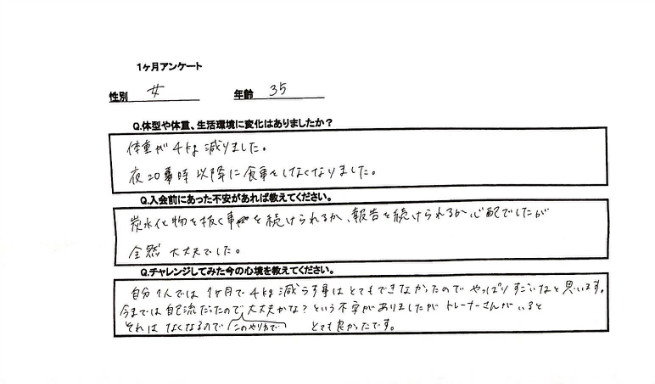 1ヶ月アンケート
性別 女 年齢 35
Q.体型や体重、生活環境に変化はありましたか？
体重が4kg減りました。
夜20時以降に食事をしなくなりました。
Q.入会前にあった不安があれば教えてください。
炭水化物を抜く事を続けられるか、報告を続けられるか心配でしたが
全然大丈夫でした。
Q.チャレンジしてみた今の心境を教えてください。
自分1人では1ヶ月で4kg減らす事はとてもできなかったのでやっぱりすごいなと思います。
今までは自己流だったので大丈夫かな？という不安がありましたがトレーナーさんがいると
それはなくなるので このやり方で とても良かったです。